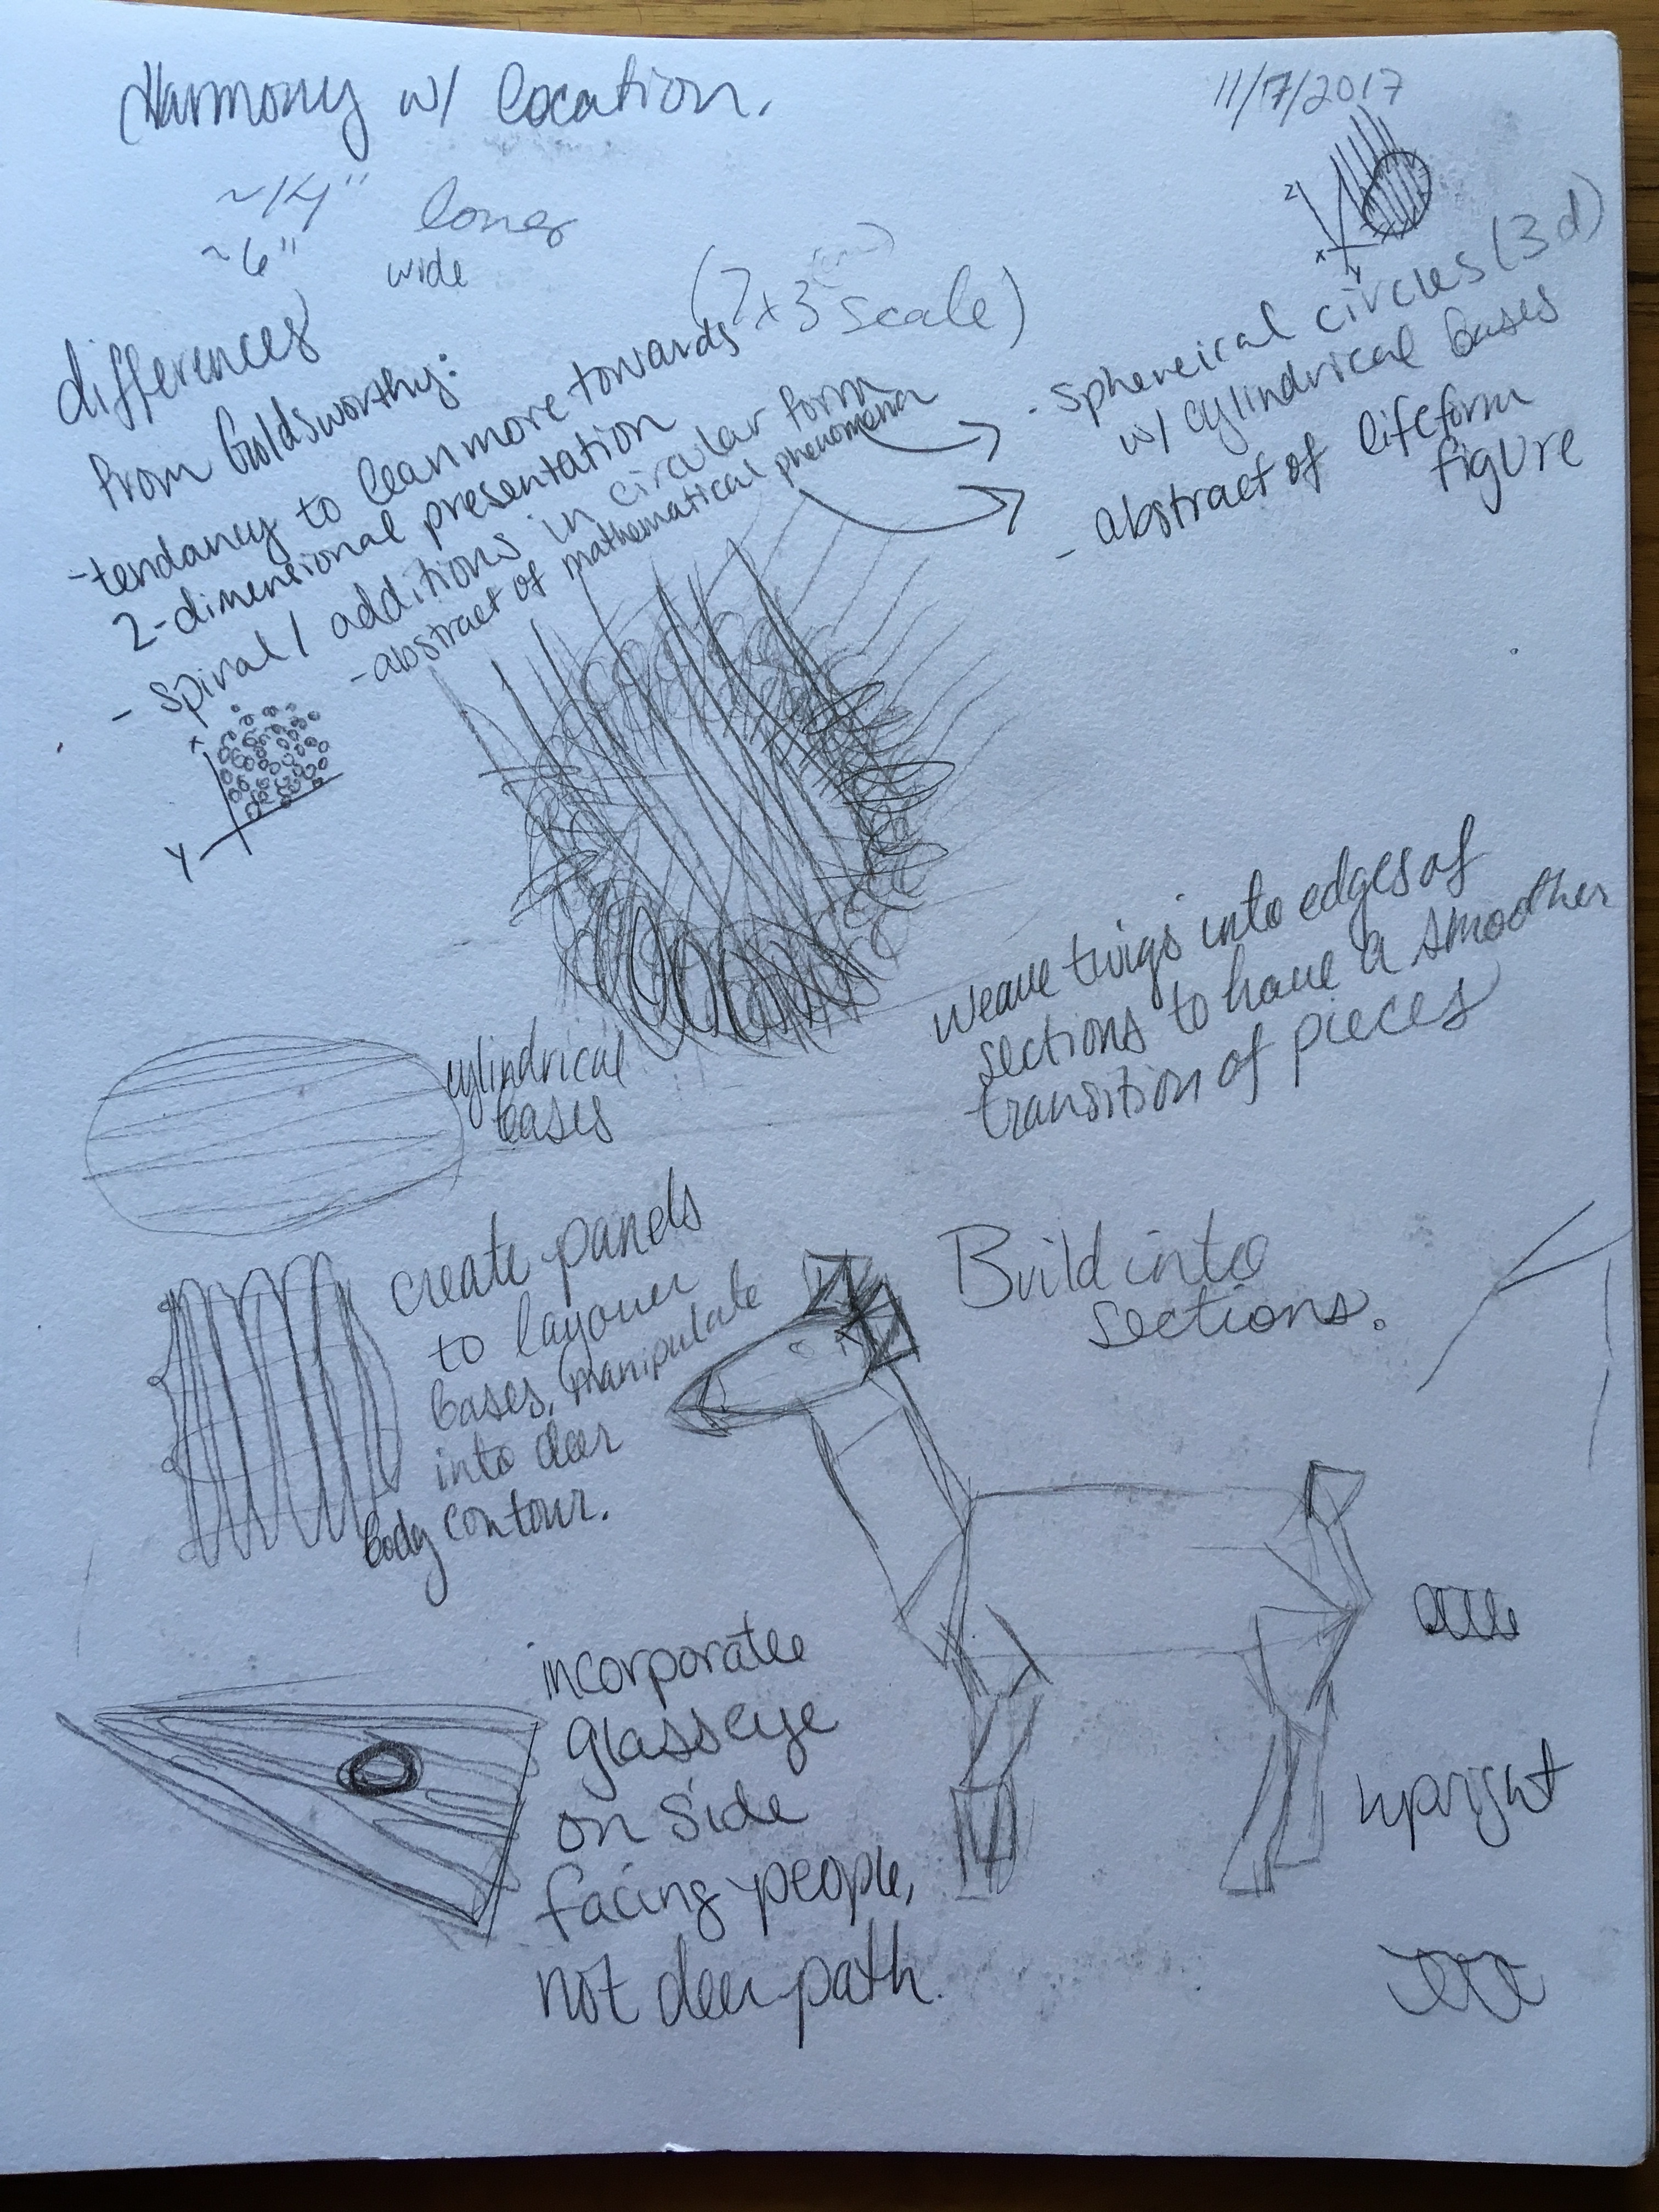 Harmony w/ location.
11/7/2017
~14" long
~6" wide
(7x3 scale)
differences
from Goldsworthy:
-tendancy to lean more towards
2-dimensional presentation
- spiral / additions in circular form
-abstract of mathematical phenomena
x
y
z
x
y
- sphereical circles (3d)
w/ cylindrical bases
- abstract of lifeform
figure
weave twigs into edges of
sections to have a smoother
transition of pieces
cylindrical
bases
create panels
to layouer
bases, manipulate
into deer
body contour.
Build into
sections.
incorporate
glass eye
on side
facing people,
not deer path.
upright